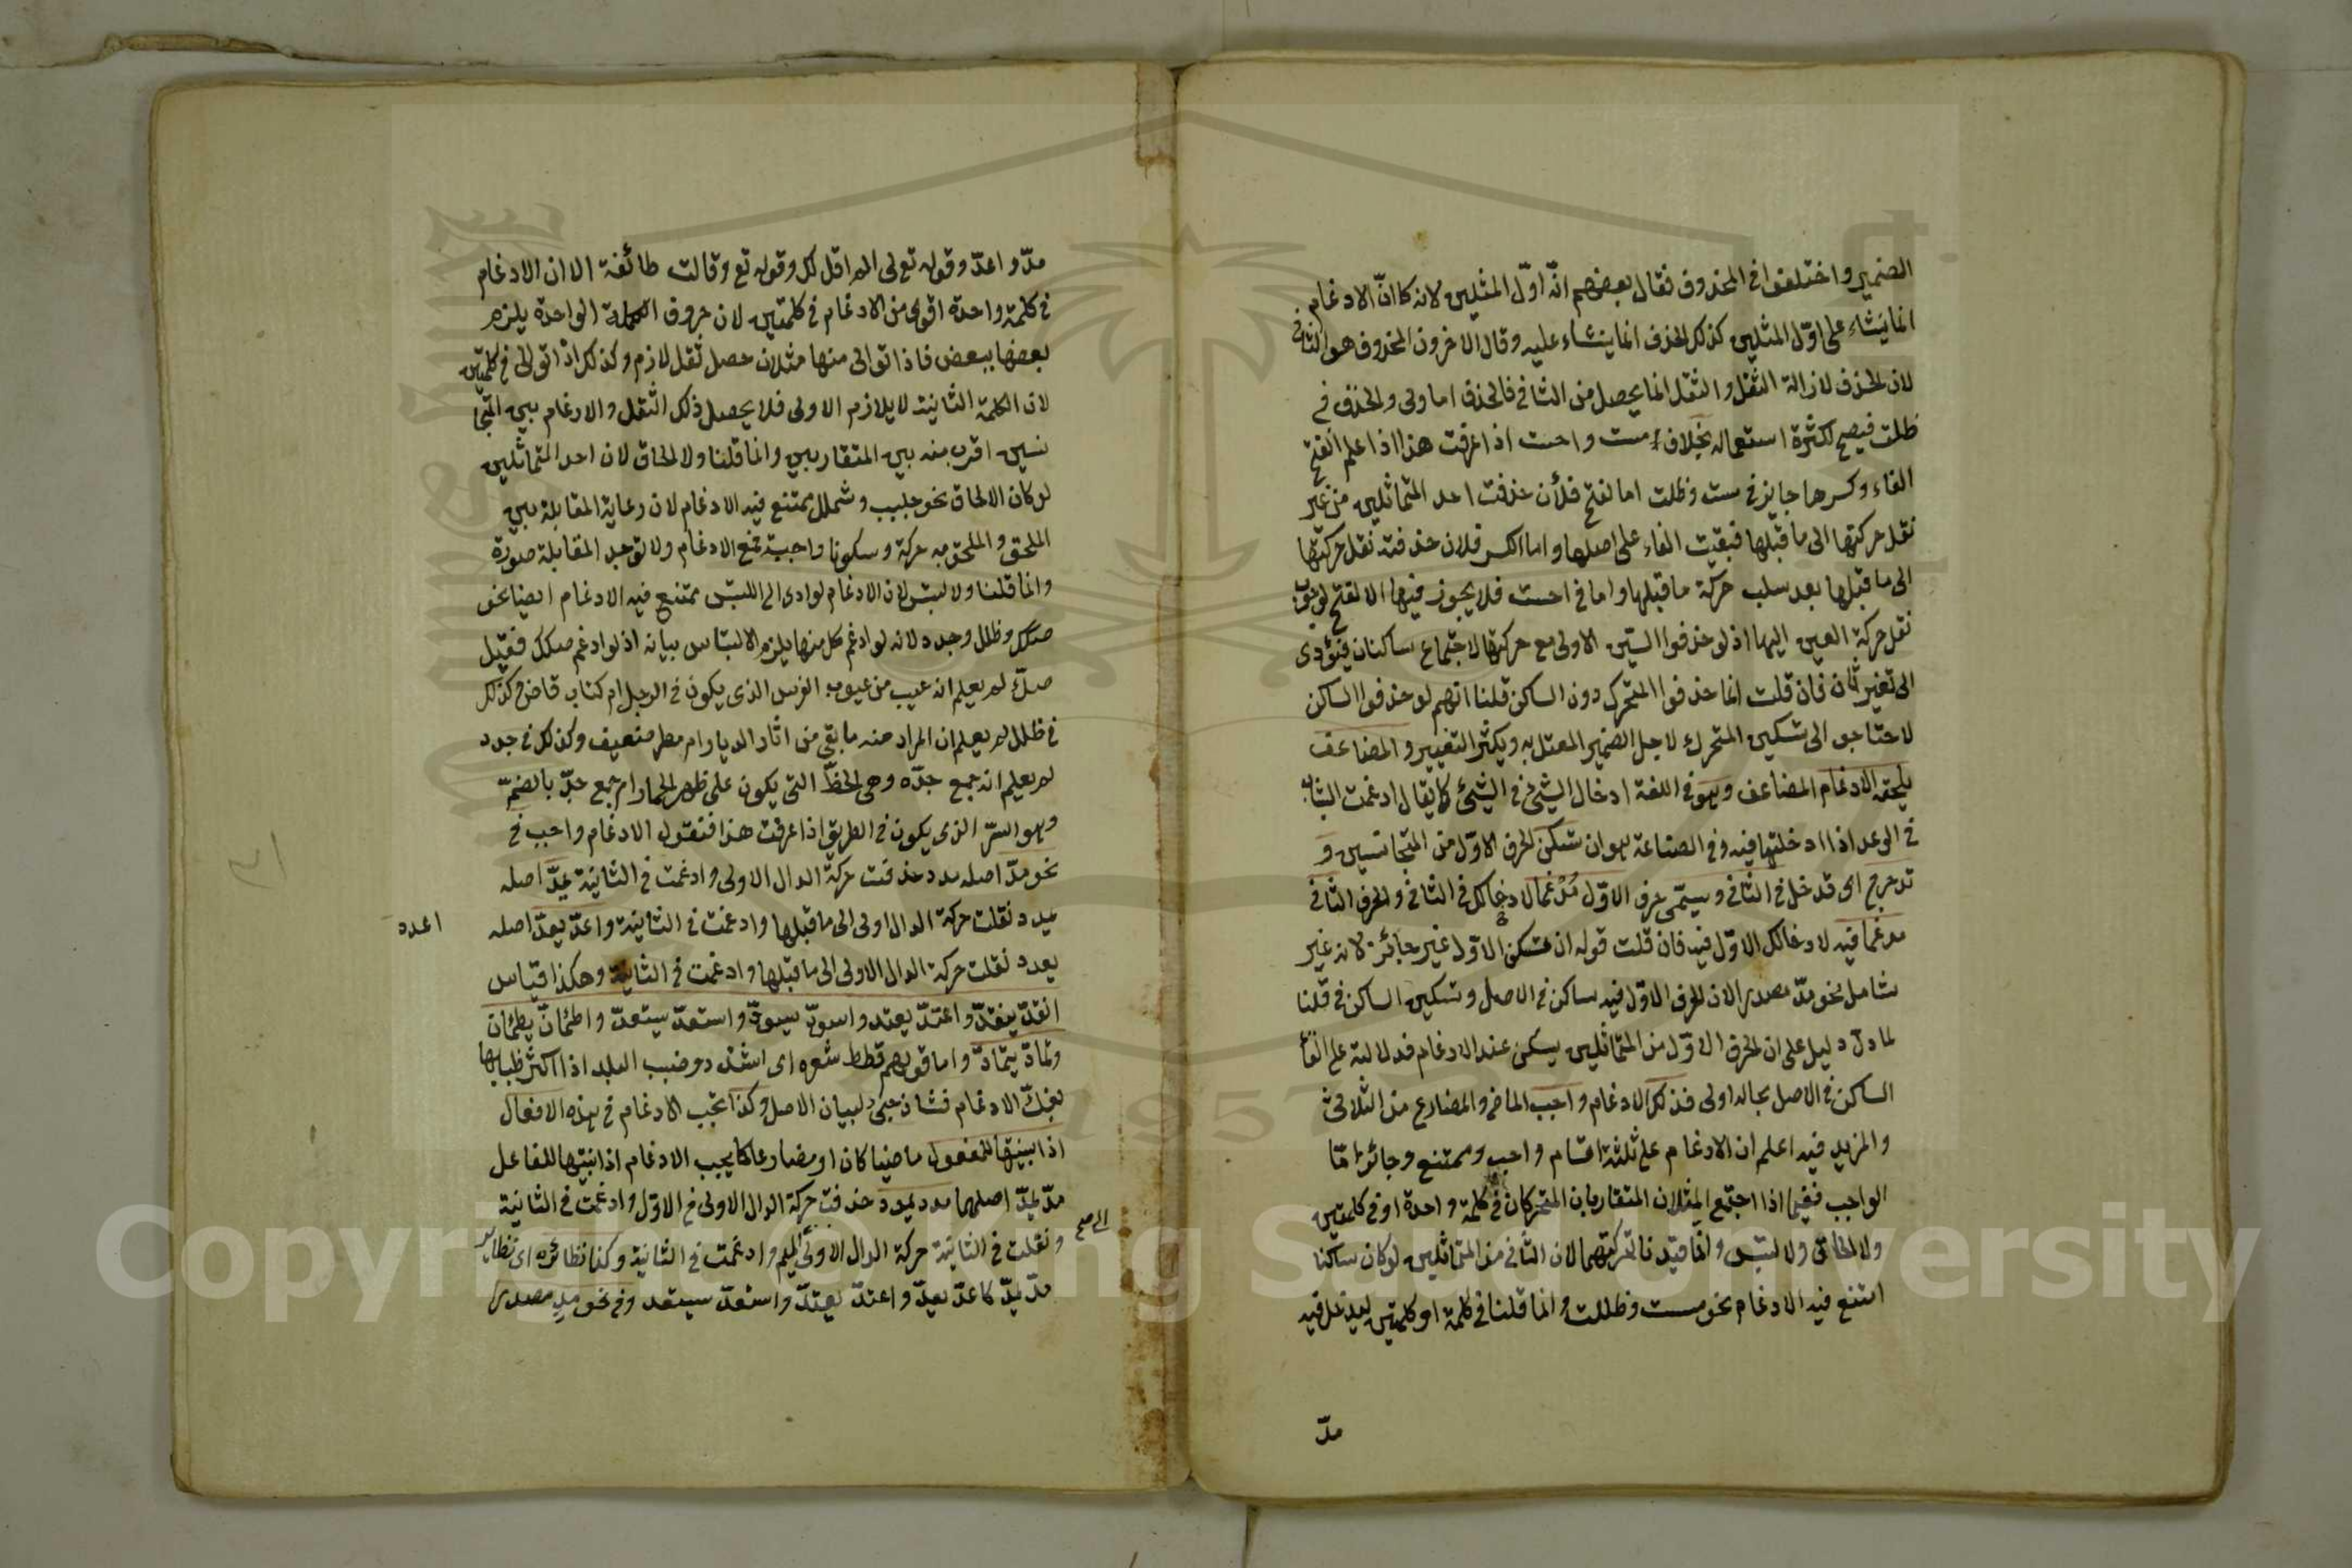 الضمير واختلفوا في المحذوف فقال بعضهم انّه اوّل المثلين لانه كما انّ الادغام
انما ينشاء على اوّل المثلين كذلك الحذف انما ينشاء عليه وقال الاخرون المحذوف هو الثاني
لان الحذف لازالة الثقل والثقل انما يحصل من الثاني فالحذف اما ولى والحذف في
ظلت فصيح لكثرة استعماله بخلاف مست واحست اذا عرفت هذا اذا علم الفتح
الفاء وكسرها جايز في مست وظلت اما لفتح فلأن حذفت احد المتماثلين من غير
نقل حركتها الى ما قبلها فبقيت الفاء على اصلها واما الكسر فلان حذفته نقل حركتها
الى ما قبلها بعد سلب حركة ما قبلها واما في احست فلا يجوز فيها الا لفتح لوجوب
نقل حركة العين اليها اذ لو حذفوا السين الاولى مع حركتها لاجتماع ساكنان فيؤدى
الى تغير ثان فان قلت انما حذفوا المتحرك دون الساكن قلنا انهم لو حذفوا الساكن
لاحتاجوا الى تسكين المتحرك لاجل الضمير المعتل به ويكثر التغيير والمضاعف
يلحقه الادغام المضاعف وهو في اللغة ادخال الشئ في الشئ كما يقال ادغمت الثياب
في الوعد اذا ادخلتها فيه وفي الصناعة هو ان تسكن الحرف الاوّل من المتجانسين و
تدرج اى قد دخل في الثاني ويسمّى حرف الاوّل مُدْغما لادخالك في الثاني والحرف الثاني
مدغما فيه لادخالك الاوّل فيه فان قلت قوله ان تسكن الاوّل غير جائز لانه غير
شامل نحو مدّ مصدر الان الحرف الاوّل فيه ساكن في الاصل وتسكين الساكن في قلنا
لما دلّ دليل على ان الحرف الاوّل من المتماثلين يسكن عند الادغام فدلالته على ابقاء
الساكن في الاصل بحاله اولى فذلك الادغام واجب الماضي والمضارع من الثلاثي
والمزيد فيه اعلم ان الادغام على ثلثة اقسام واجب وممتنع وجائز امّا
الواجب ففيما اذا اجتمع المثلان المتقاربان المتحركان في كلمة واحدة او في كلمتين
ولا الحاق ولا لبس وانما قيدنا لحركتهما لان الثاني من المتماثلين لو كان ساكنا
امتنع فيه الادغام نحو مسست وظللت وانما قلنا في كلمة او كلمتين ليدخل فيه
مدّ
مدّ واعدّ وقوله تعالى الم اقل لك وقوله تع وقالت طائفة الا ان الادغام
في كلمة واحدة اقوى من الادغام في كلمتين لان حروف الكلمة الواحدة يلزم
بعضها ببعض فاذا توالى منها مثلان حصل ثقل لازم وكذلك اذا توالى في كلمتين
لان الكلمة الثانية لا يلازم الاولى فلا يحصل ذلك الثقل والادغام بين المتجا
نسين اقرب منه بين المتقاربين وانما قلنا ولا الحاق لان احد المتماثلين
لو كان الالحاق نحو جلبب وشملل يمتنع فيه الادغام لان رعاية المقابلة بين
الملحق والملحق به حركة وسكونا واجبة تمنع الادغام ولا توجد المقابلة صورة
وانما قلنا ولا لبس لان الادغام لو ادى الى اللبس ممتنع فيه الادغام ايضا نحو
صكك وظلل وجدد لانه لو ادغم كل منها يلزم الالتباس بيانه اذ لو ادغم صكك فقيل
صكّ لم يعلم انه عيب من عيوب الفرس الذى يكون في الرجل ام كتاب قاض وكذلك
في ظلل لم يعلم ان المراد منه ما بقى من اثار الديار ام مطر ضعيف وكذلك في جدد
لم يعلم انه جمع جدّه وهي الخطّ التى يكون على ظهر الحمار ام جمع جدّ بالضمّ
وهو السرّ الذى يكون في الطريق اذا عرفت هذا فنقول الادغام واجب في
نحو مدّ اصله مدد حذفت حركة الدال الاولى وادغمت في الثانية يمدّ اصله
يمدد نقلت حركة الدال اولى الى ما قبلها وادغمت في الثانية واعدّ يعدّ اصله
اعدد
يعدد نقلت حركة الدال الاولى الى ما قبلها وادغمت في الثانية وهكذا قياس
انقدّ ينقدّ واعتدّ يعتد واسودّ يسودّ واستعدّ يستعدّ واطمأنّ يطمئنّ
وتمادّ يتمادّ واما قولهم قطط شعره اى اشتد وضبب البلد اذا اكثر ظبابها
بفكّ الادغام فشاذ جئ لبيان الاصل وكذا يجب الادغام في هذه الافعال
اذا بنيتها للمفعول ماضيا كان او مضارعا كما يجب الادغام اذا بنيتها للفاعل
مدّ يمدّ اصلهما مدد يمدد حذفت حركة الدال الاولى في الاوّل وادغمت في الثانية
ونقلت في الثانية حركة الدال الاولى الى الميم وادغمت في الثانية وكذا نظائره اى نظاير
الى صح
مدّ يمدّ كاعدّ يعدّ واعتدّ يعتدّ واستعدّ يستعد وفي نحو مدٍ مصدرا